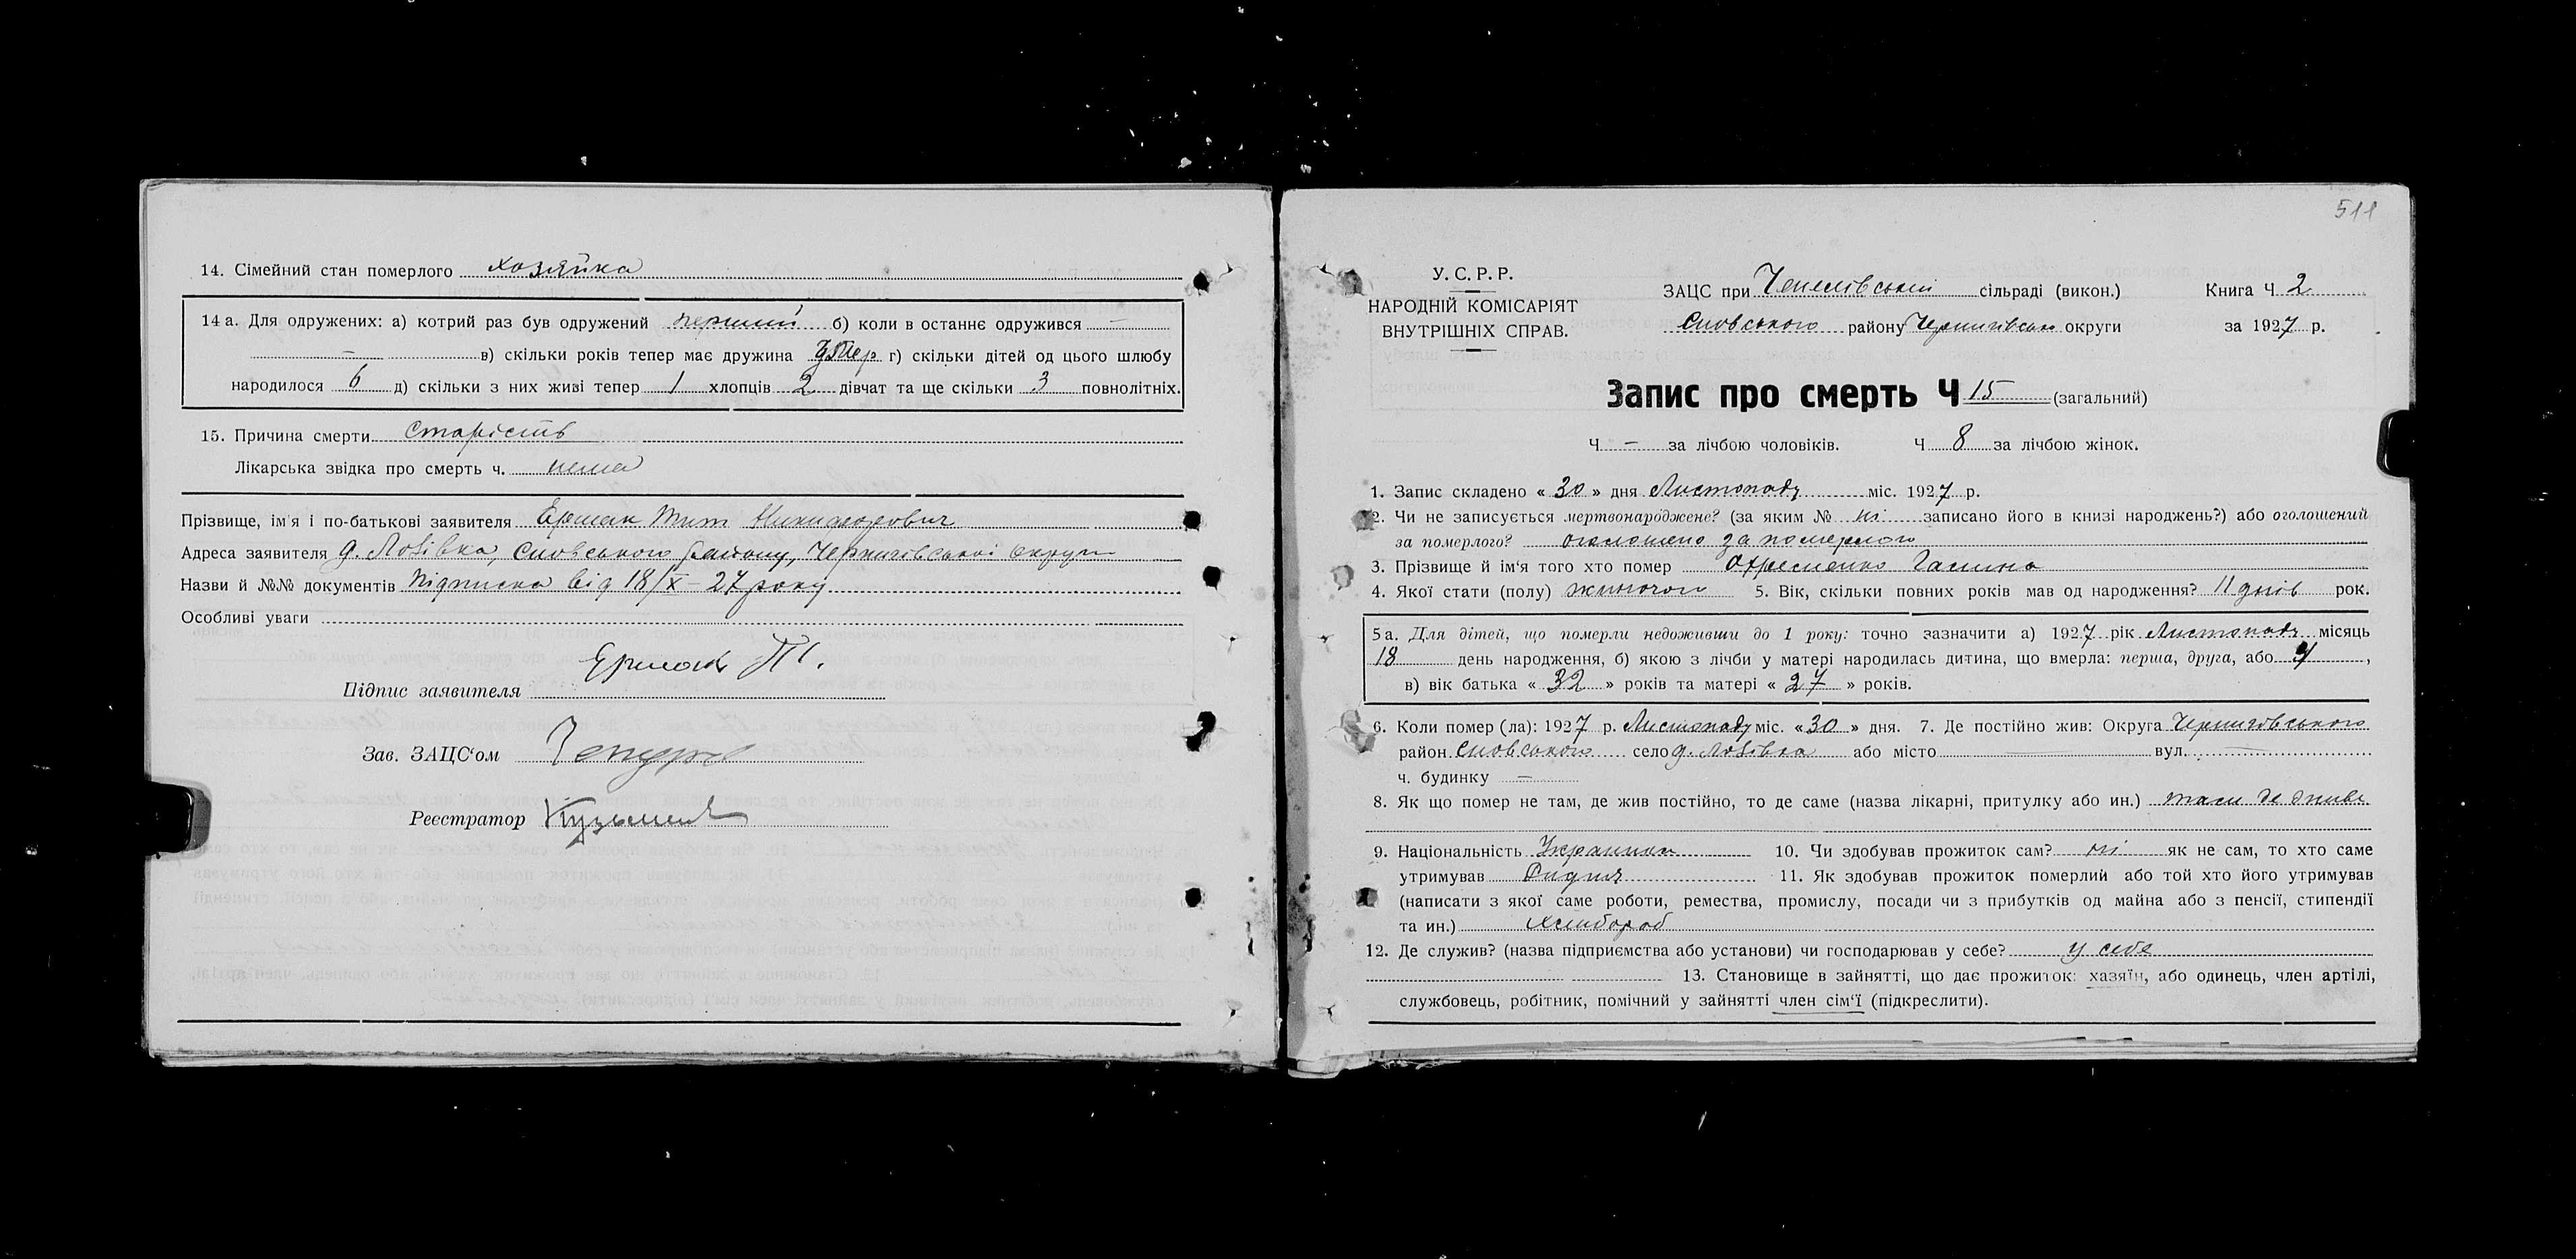 14. Сімейний стан померлого хозяйка
14 а. Для одружених: а) котрий раз був одружений перший б) коли в останнє одружився —
— в) скільки років тепер має дружина умер г) скільки дітей од цього шлюбу
народилося 6 д) скільки з них живі тепер 1 хлопців 2 дівчат та ще скільки 3 повнолітніх.
15. Причина смерти старість
Лікарська звідка про смерть ч. нема
Прізвище, ім'я і по-батькові заявителя Ермак Тит
Адреса заявителя д. Лозівка, Сновського району, Чернигівської округи
Назви й №№ документів підписка від 18/X – 27 року
Особливі уваги
Ермак Т.
Підпис заявителя
Зав. ЗАЦС'ом
Реєстратор
511
У. С. Р. Р.
НАРОДНІЙ КОМІСАРІЯТ
ВНУТРІШНІХ СПРАВ.
ЗАЦС при сільраді (викон.) Книга Ч 2
Сновського району Чернигівськ округи за 1927 р.
Запис про смерть Ч 15 (загальний)
Ч — за лічбою чоловіків. Ч 8 за лічбою жінок.
1. Запис складено « 30 » дня Листопаду міс. 1927 р.
2. Чи не записується мертвонароджене? (за яким № ні записано його в книзі народжень?) або оголошений
за померлого? оголошено за померлого
3. Прізвище й ім'я того хто помер Галина
4. Якої стати (полу) жиночого 5. Вік, скільки повних років мав од народження? 11 днів рок.
5 а. Для дітей, що померли недоживши до 1 року: точно зазначити а) 1927 рік Листопаду місяць
18 день народження, б) якою з лічби у матері народилась дитина, що вмерла: перша, друга, або ,
в) вік батька « 32 » років та матері « 27 » років.
6. Коли помер (ла): 1927 р. Листопаду міс. «30» дня. 7. Де постійно жив: Округа Чернигівського
район Сновського село д. Лозівка або місто — вул. —
ч. будинку —
8. Як що помер не там, де жив постійно, то де саме (назва лікарні, притулку або ин.) там де живе
9. Національність 10. Чи здобував прожиток сам? ні як не сам, то хто саме
утримував 11. Як здобував прожиток померлий або той хто його утримував
(написати з якої саме роботи, ремества, промислу, посади чи з прибутків од майна або з пенсії, стипендії
та ин.) Хлибороб
12. Де служив? (назва підприємства або установи) чи господарював у себе? у себе
13. Становище в зайнятті, що дає прожиток: хазяїн, або одинець, член артілі,
службовець, робітник, помічний у зайнятті член сім'ї (підкреслити).